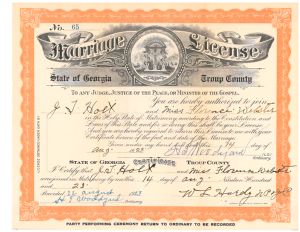 No. 65
Marriage License
State of Georgia Troup County
To any Judge, Justice of the Peace, or Minister of the Gospel.
You are hereby authorized to join
J T Holt and Miss Florence Webster
in the Holy State of Matrimony according to the Constitution and
Laws of this State and for so doing this shall be your License.
And you are hereby required to return this License to me with your
Certificate hereon of the fact and date of the Marriage.
Given under my hand and seal this 14 day
of Aug 1923
State of Georgia Certificate Troup County
I Certify that J T Holt and Miss Florence Webster
were joined in Matrimony by me this 14 day of Aug Nineteen Hundred
and 23
Recorded 22 August 1923
W L Hardy
Party performing ceremony return to Ordinary to be recorded